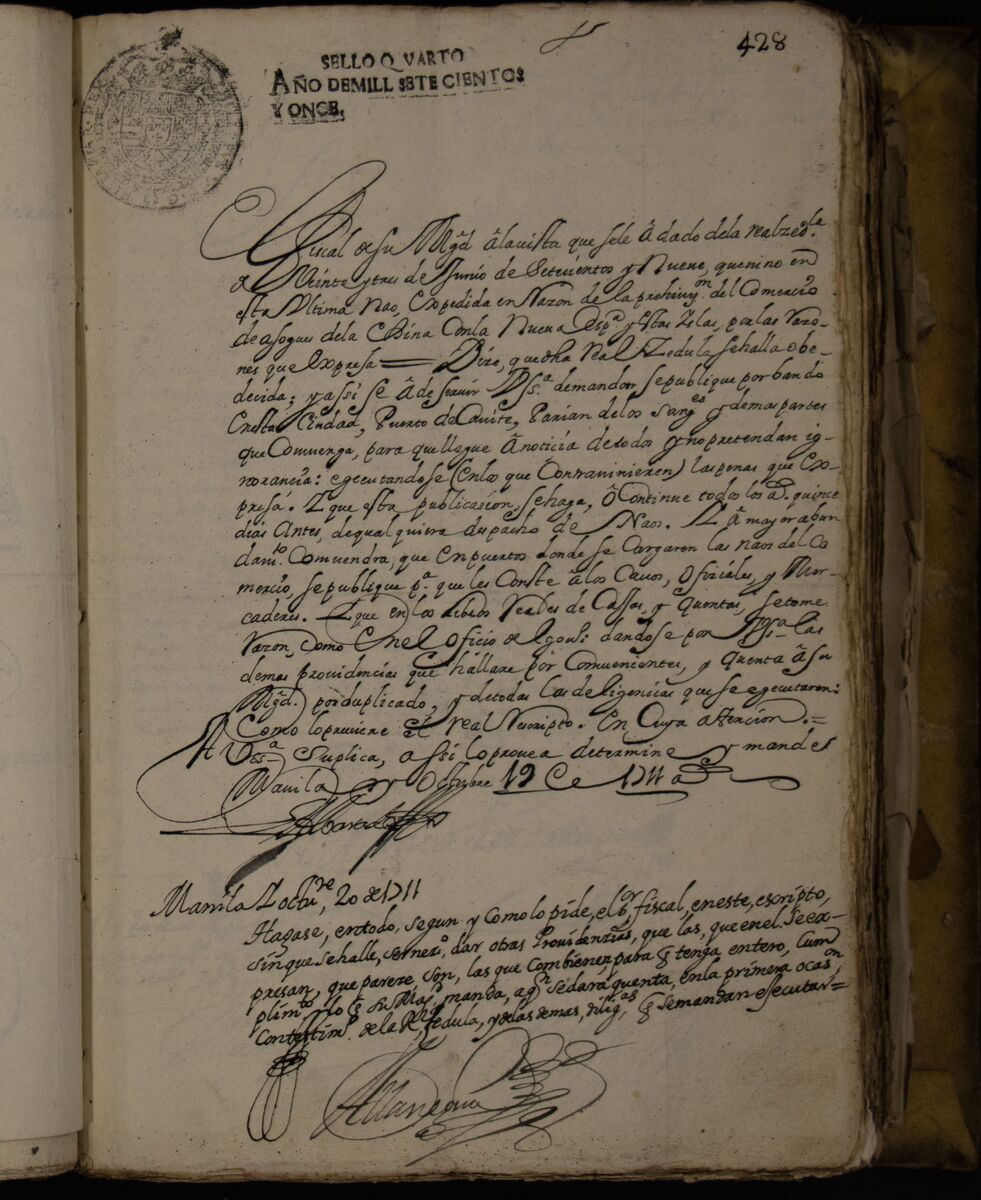 428
SELLO QVARTO
AÑO DE MILL SETECIENTOS
Y ONCE.
Fiscal de su Mgd â la vista que se le â dado de la real zedla
de Veinte y tres de Junio de Setecientos y Nueve, que vino en
esta Ultima nao, Expedida en Razon de la prohivizon del Comercio
de asogues de la China con la Nueva Espa y estas Islas, por las razo-
nes que expresa = Dize, que dha real Zedula se halla obe-
decida; y assi se â de servir Vssa de mandar se publique por bando
en esta Ciudad, Puerto de Cavite, Parian de los Sanges y demas partes
que Comvenga, para que llegue â noticia de todos y no pretendan ig-
norancia: egecutandose (en los que Contravinieren) las penas que Ex-
presa. Y que esta publicasion, se haga, ô Continue todos los as. quince
dias antes, de qualquiera despacho de Naos. Y â mayor abun
damto Comvendra, que en puertos donde se Cargaren las naos del Co
mercio, se publique pa. que les Conste â los Cavos, Ofiziales, y Mer-
caderes. Y que en los Libros Reales de Caxas, y quentas, se tome
razon, como en el Oficio de Igovo: dandose por Vssa las
demas providencias que hallare por Comvenientes, y quenta â su
Mgd. por duplicado, y de todas las deligencias que se egecutaren:
Como lo previene el real Rescripto. En Cuya atencion. =
A Vssa Suplica, assi lo provea determine y mande
Manila y Octubre 19 de 1711 as
Manila Y octubre, 20 de 1711
Hagase, en todo, segun y como lo pide, el Sr fiscal, en este, escripto,
sin que se halle, ser neco. dar otras Providenzias, que las, que en el. se ex-
presan, que parece, son, las que combienen, para q tenga entero, Cum
plimto lo q su Magd manda, a qn se dara quenta, en la primera ocason,
con testimo. de la Rl Zedula, y de las demas, diligas, q se mandan executar =